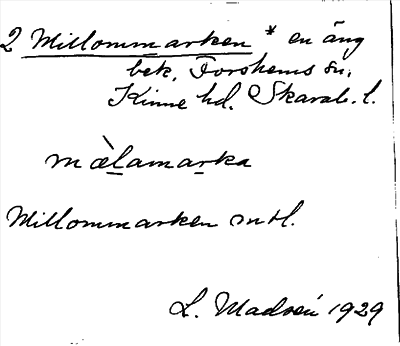 2 Millommarken * en äng
bek, Forshems sn.
Kinne hd. Skarab. l.
mæ̀lamarka
Millommarken mtl.
L. Madsén 1929